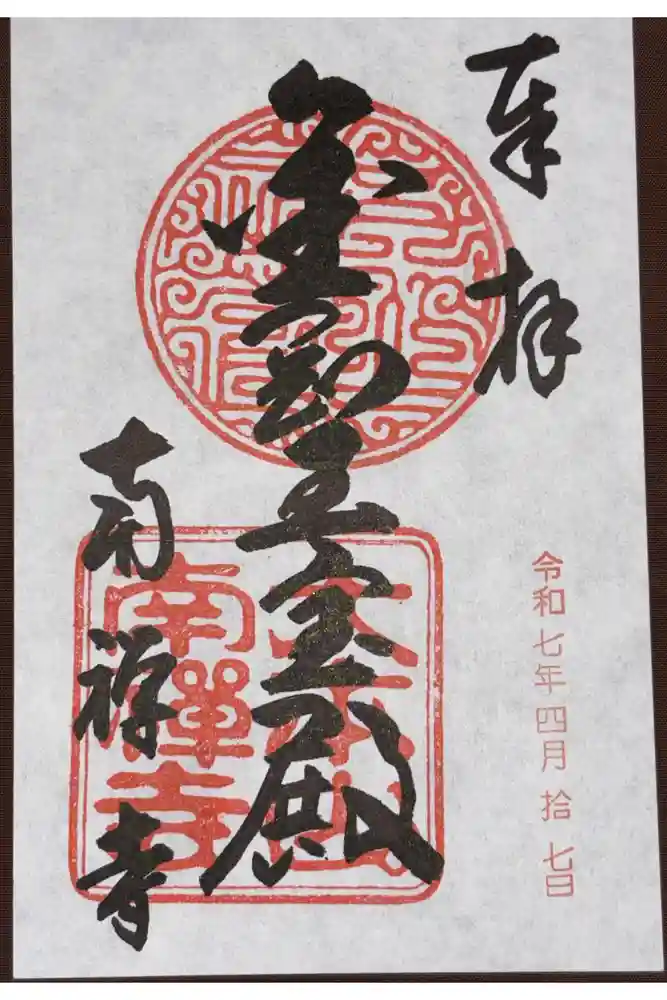 奉拝
金剛王宝殿
南禅寺
南禪寺
令和七年四月拾七日